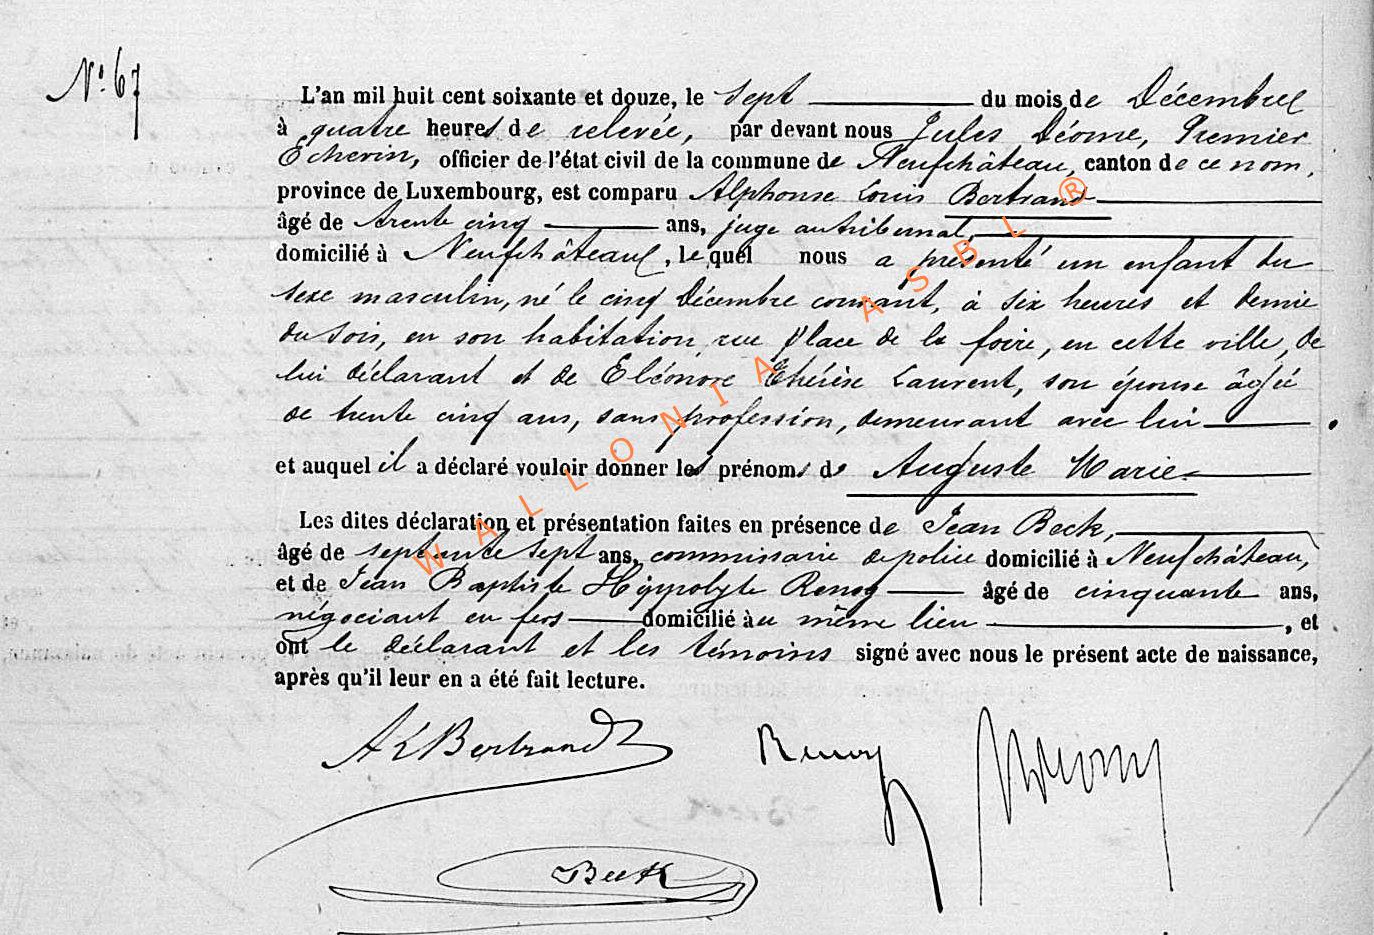 N° 67
L'an mil huit cent soixante et douze, le sept du mois de Décembre
à quatre heures de relevée, par devant nous Jules Déome, Premier
Echevin, officier de l'état civil de la commune de Neufchâteau, canton de ce nom,
province de Luxembourg, est comparu Alphonse Louis Bertrand
âgé de trente cinq ans, juge au tribunal,
domicilié à Neufchâteau, le quel nous a présenté un enfant du
sexe masculin, né le cinq Décembre courant, à six heures et demie
du soir, en son habitation, rue place de la foire, en cette ville, de
lui déclarant et de Eléonore Thérèse Laurent, son épouse âgée
de trente cinq ans, sans profession, demeurant avec lui
et auquel il a déclaré vouloir donner les prénoms de Auguste Marie
Les dites déclaration et présentation faites en présence de Jean Beck,
âgé de septante sept ans, commissaire de police domicilié à Neufchâteau,
et de Jean Baptiste Hyppolyte Renoy âgé de cinquante ans,
négociant en fers domicilié au même lieu, et
ont le déclarant et les témoins signé avec nous le présent acte de naissance,
après qu'il leur en a été fait lecture.
A L Bertrand Renoy
Beck
WALLONIA ASBL ®